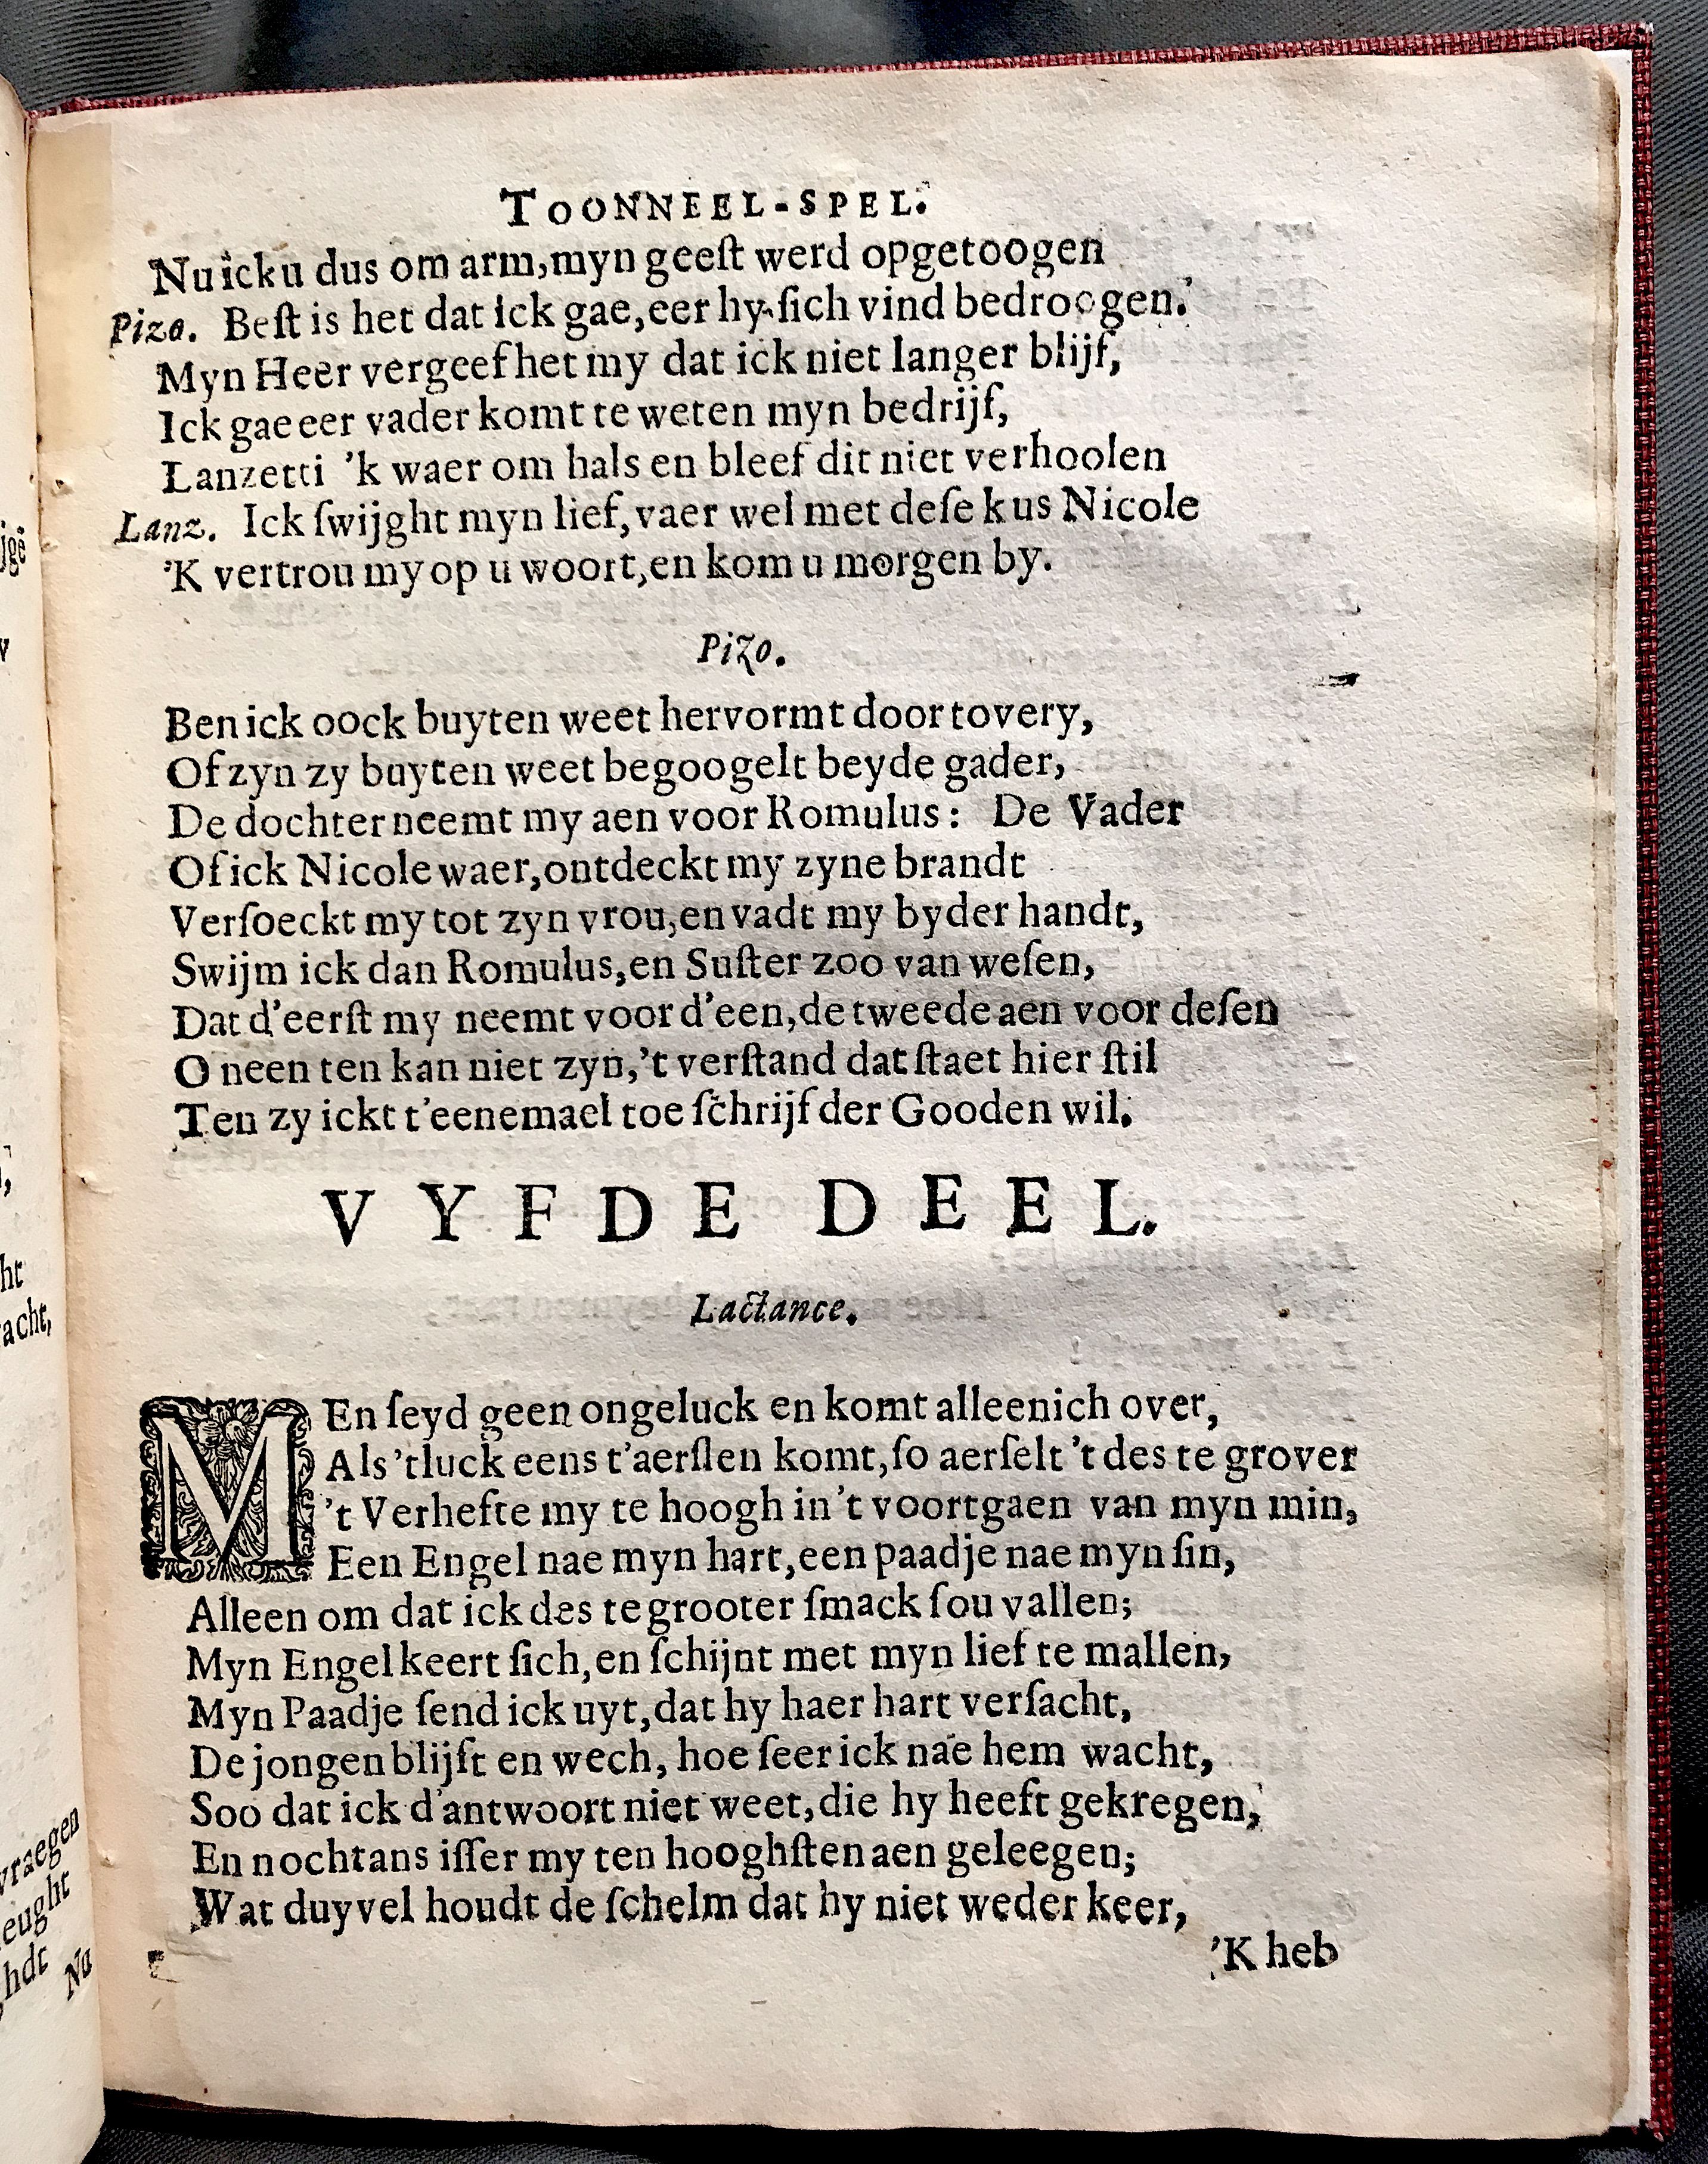 TOONNEEL-SPEL.
Nu ick u dus om arm, myn geeſt werd opgetoogen
Pizo. Beſt is het dat ick gae, eer hy ſich vind bedroogen.
Myn Heer vergeef het my dat ick niet langer blijf,
Ick gae eer vader komt te weten myn bedrijf,
Lanzetti 'k waer om hals en bleef dit niet verhoolen
Lanz. Ick ſwijght myn lief, vaer wel met deſe kus Nicole
'K vertrou my op u woort, en kom u morgen by.
Pizo.
Ben ick oock buyten weet hervormt door tovery,
Of zyn zy buyten weet begoogelt beyde gader,
De dochter neemt my aen voor Romulus: De Vader
Of ick Nicole waer, ontdeckt my zyne brandt
Verſoeckt my tot zyn vrou, en vadt my by der handt,
Swijm ick dan Romulus, en Suſter zoo van weſen,
Dat d'eerſt my neemt voor d'een, de tweede aen voor deſen
O neen ten kan niet zyn, 't verſtand dat ſtaet hier ſtil
Ten zy ickt t'eenemael toe ſchrijf der Gooden wil.
VYFDE DEEL.
Lactance.
MEn ſeyd geen ongeluck en komt alleenich over,
Als 'tluck eens t'aerſlen komt, ſo aerſelt 't des te grover
't Verhefte my te hoogh in 't voortgaen van myn min,
Een Engel nae myn hart, een paadje nae myn ſin,
Alleen om dat ick des te grooter ſmack ſou vallen;
Myn Engel keert ſich, en ſchijnt met myn lief te mallen,
Myn Paadje ſend ick uyt, dat hy haer hart verſacht,
De jongen blijft en wech, hoe ſeer ick nae hem wacht,
Soo dat ick d'antwoort niet weet, die hy heeft gekregen,
En nochtans iſſer my ten hooghſten aen geleegen;
Wat duyvel houdt de ſchelm dat hy niet weder keer,
'K heb